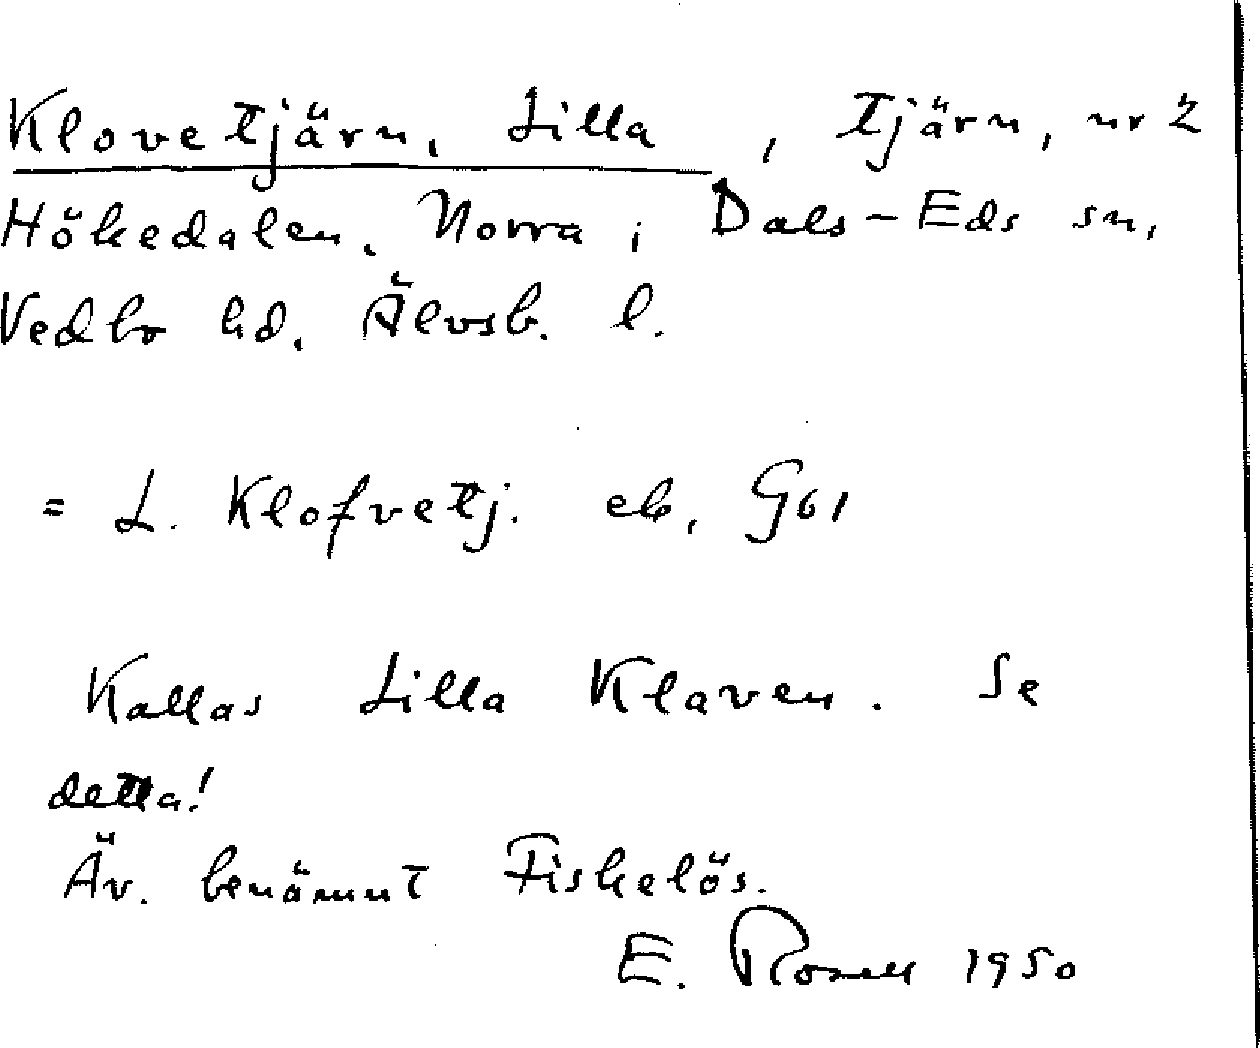 Klovetjärn, Lilla, tjärn, nr 2
Hökedalen, Norra i Dals-Eds sn,
Vedbo hd. Älvsb. l.
= L. Klofvetj. eb, G61
Kallas Lilla Klaven. Se
detta!
Äv. benämnt Fiskelös.
E. Rosell 1950